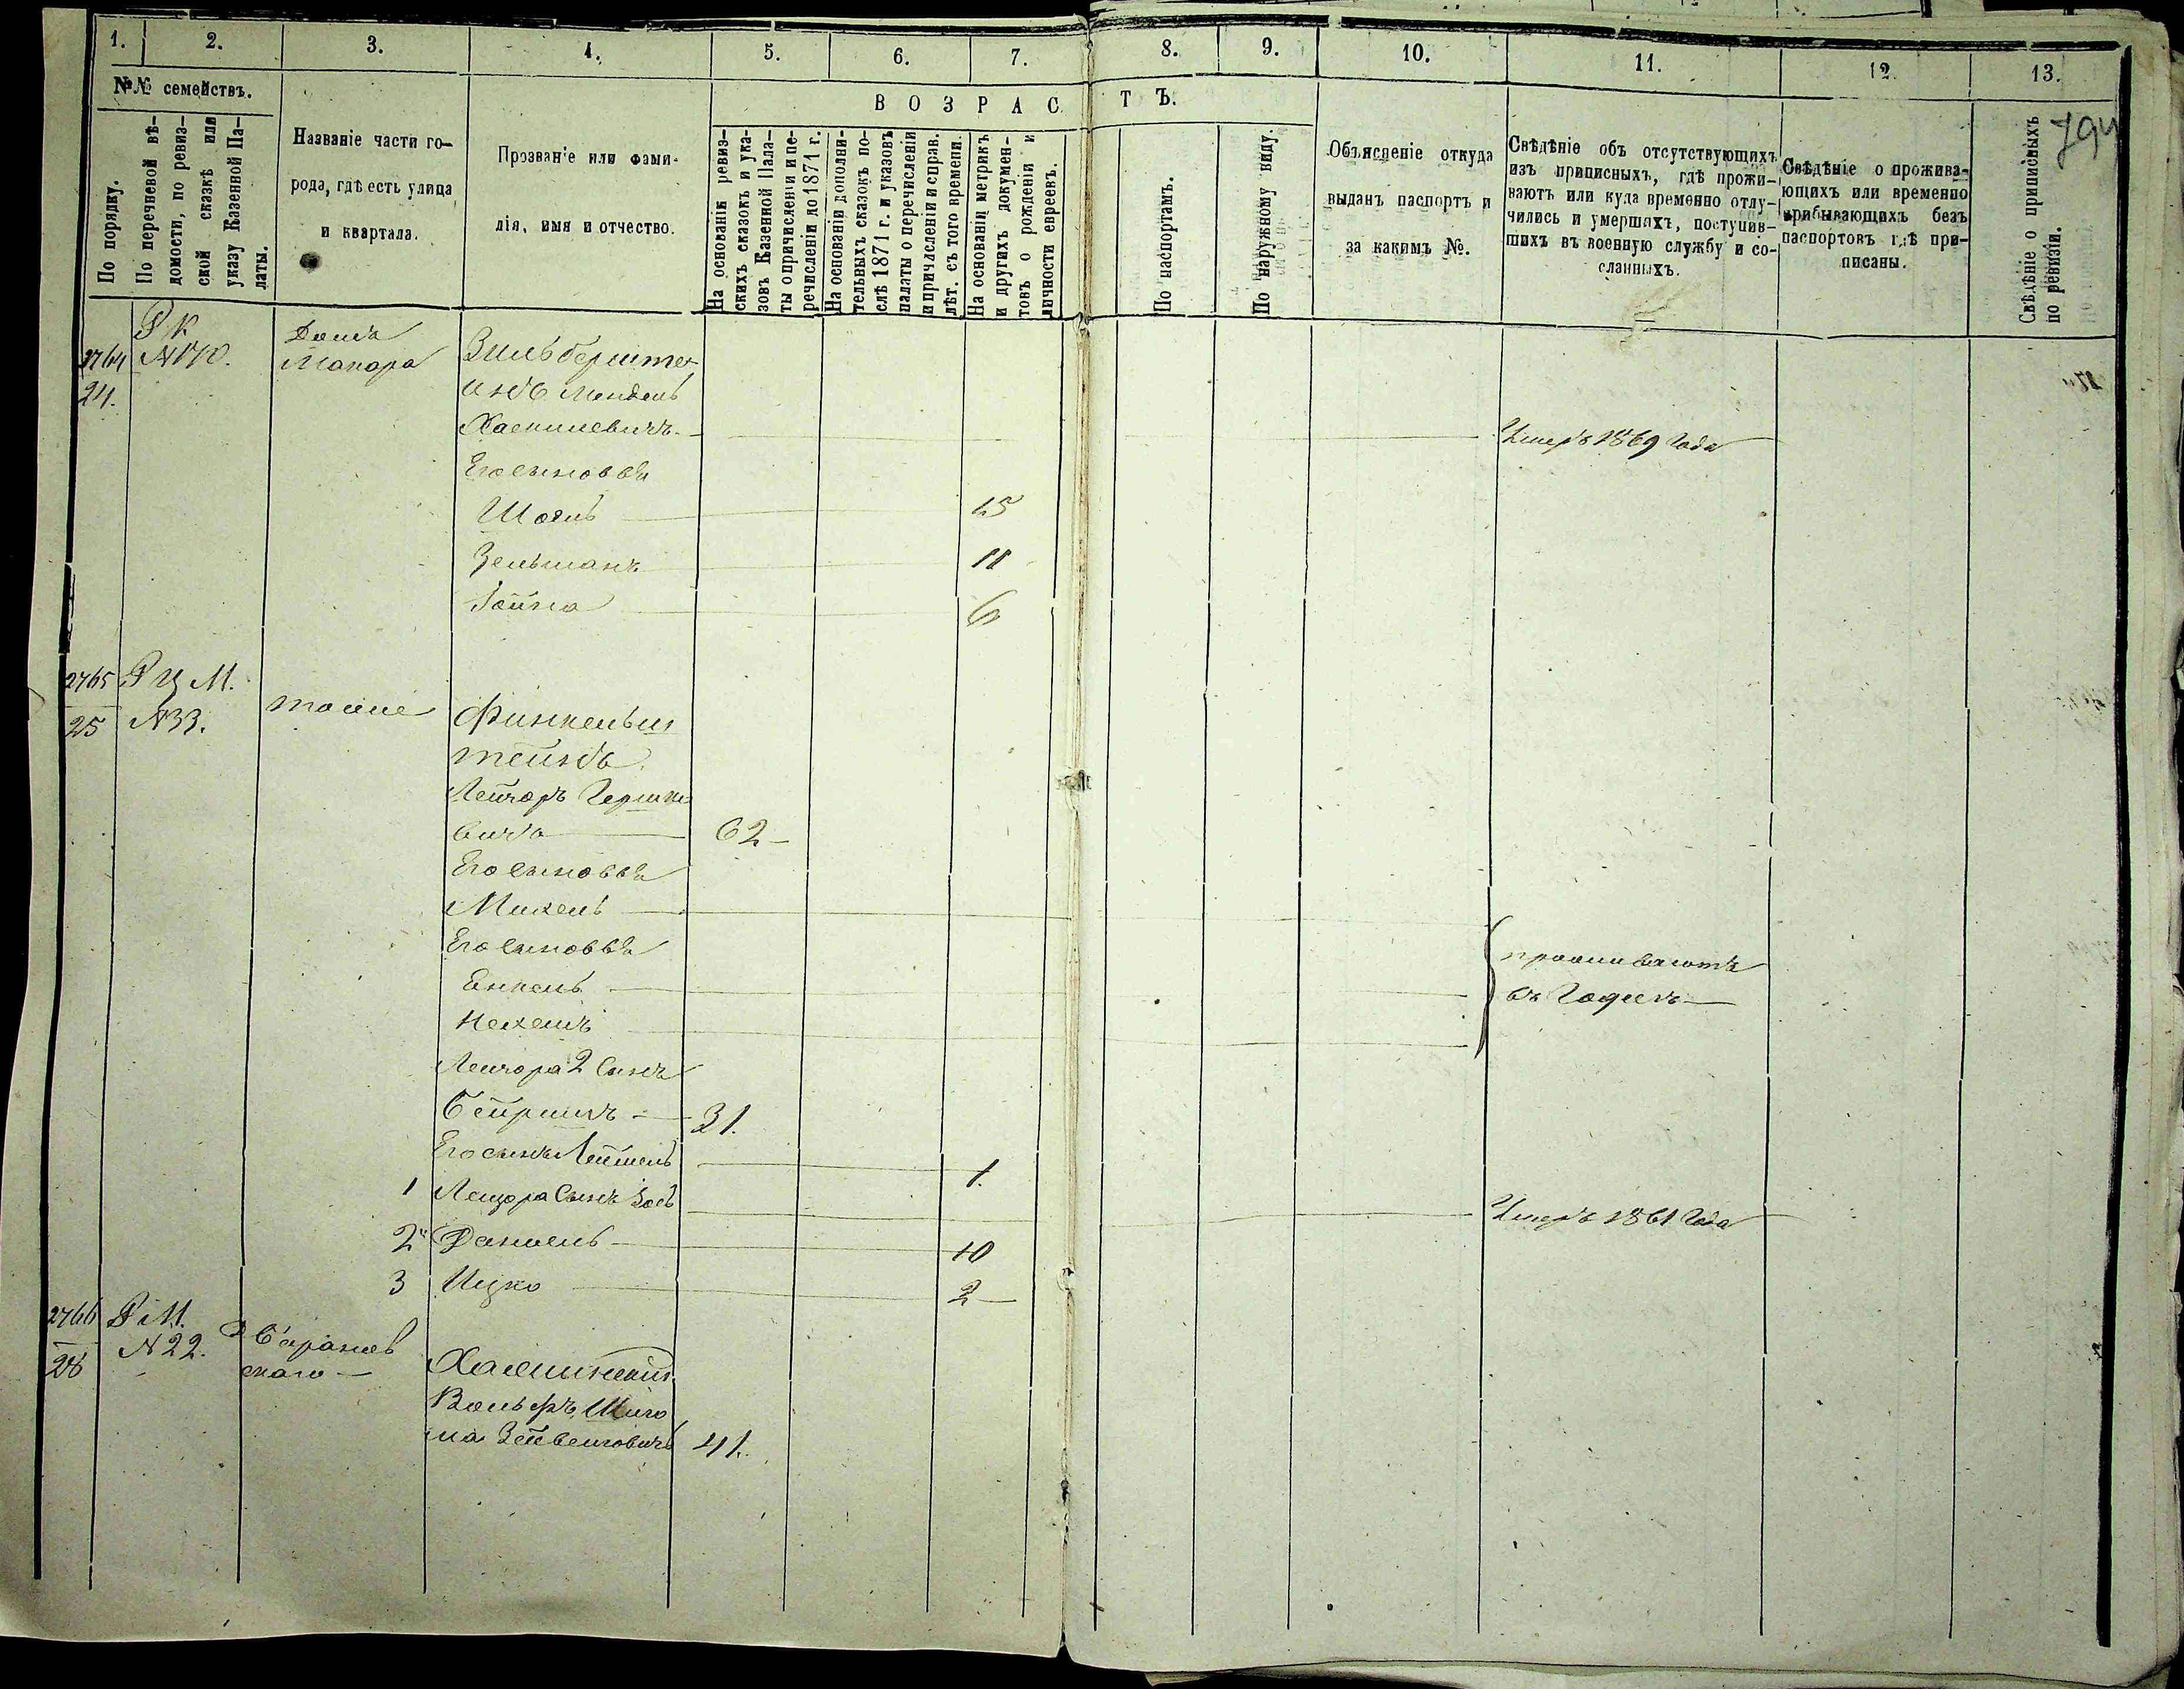 1. 2. 3. 4. 5. 6. 7. 8. 9. 10. 11. 12. 13.
№№ семействъ.
По порядку.
По перечневой вѣ-
домости, по ревиз-
ской сказкѣ или
указу Казенной Па-
латы.
Названіе части го-
рода, гдѣ есть улица
и квартала.
Прозваніе или фами-
лія, имя и отчество.
ВОЗРАСТЪ.
На основаніи ревиз-
скихъ сказокъ и ука-
зовъ Казенной Пала-
ты о причисленіи и пе-
речисленіи до 1871 г.
На основаніи дополни-
тельныхъ сказокъ по-
слѣ 1871 г. и указовъ
палаты о перечисленіи
и причленіи и справ.
лѣт. съ того времени.
На основаніи метрикъ
и другихъ докумен-
товъ о рожденіи и
личности евреевъ.
По паспортамъ.
По наружному виду.
Объясненіе откуда
выданъ паспортъ и
за какимъ №.
Свѣдѣніе объ отсутствующихъ
изъ приписныхъ, гдѣ прожи-
ваютъ или куда временно отлу-
чились и умершихъ, поступив-
шихъ въ военную службу и со-
сланныхъ.
Свѣдѣніе о прожива-
ющихъ или временно
прибывающихъ безъ
паспортовъ гдѣ при-
писаны.
Свѣдѣніе о приписныхъ
по ревизіи.
2764 Р К Домъ
24. №170. Макара Зильберште-
инъ Мендель
Хаскилевичъ Умеръ 1869 года
Его сыновья
15
Зельманъ 11
6
2765 Р Ц М.
25 №33. тоже Финкельш
тейнъ
Лейзоръ Гершко
вичъ 62
Его сыновья
Михель
Его сыновья
Енкель
проживаютъ
Лейзора 2 сынъ
31.
Его сынъ 1.
1 Лейзора сынъ Умеръ 1861 года
2 Даніель 10
3 Ицко 2
2766
№22.
скаго
Вольфъ
41.